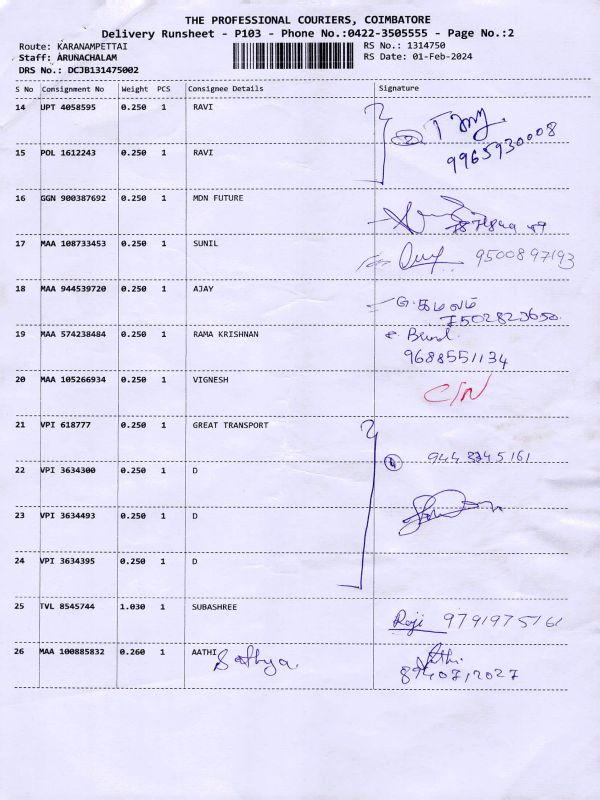 THE PROFESSIONAL COURIERS, COIMBATORE
Delivery Runsheet - P103 - Phone No.:0422-3505555 - Page No.:2
Route: KARANAMPETTAI RS No.: 1314750
Staff: ARUNACHALAM RS Date: 01-Feb-2024
DRS No.: DCJB131475002
S No Consignment No Weight PCS Consignee Details Signature
14 UPT 4058595 0.250 1 RAVI
9965930008
15 POL 1612243 0.250 1 RAVI
16 GGN 900387692 0.250 1 MDN FUTURE
17 MAA 108733453 0.250 1 SUNIL
9500897193
18 MAA 944539720 0.250 1 AJAY
7502823650
19 MAA 574238484 0.250 1 RAMA KRISHNAN
9688551134
20 MAA 105266934 0.250 1 VIGNESH C/N
21 VPI 618777 0.250 1 GREAT TRANSPORT
4 944 3245161
22 VPI 3634300 0.250 1 D
23 VPI 3634493 0.250 1 D
24 VPI 3634395 0.250 1 D
25 TVL 8545744 1.030 1 SUBASHREE Raji 9791975161
26 MAA 100885832 0.260 1 AATHI Sathya.